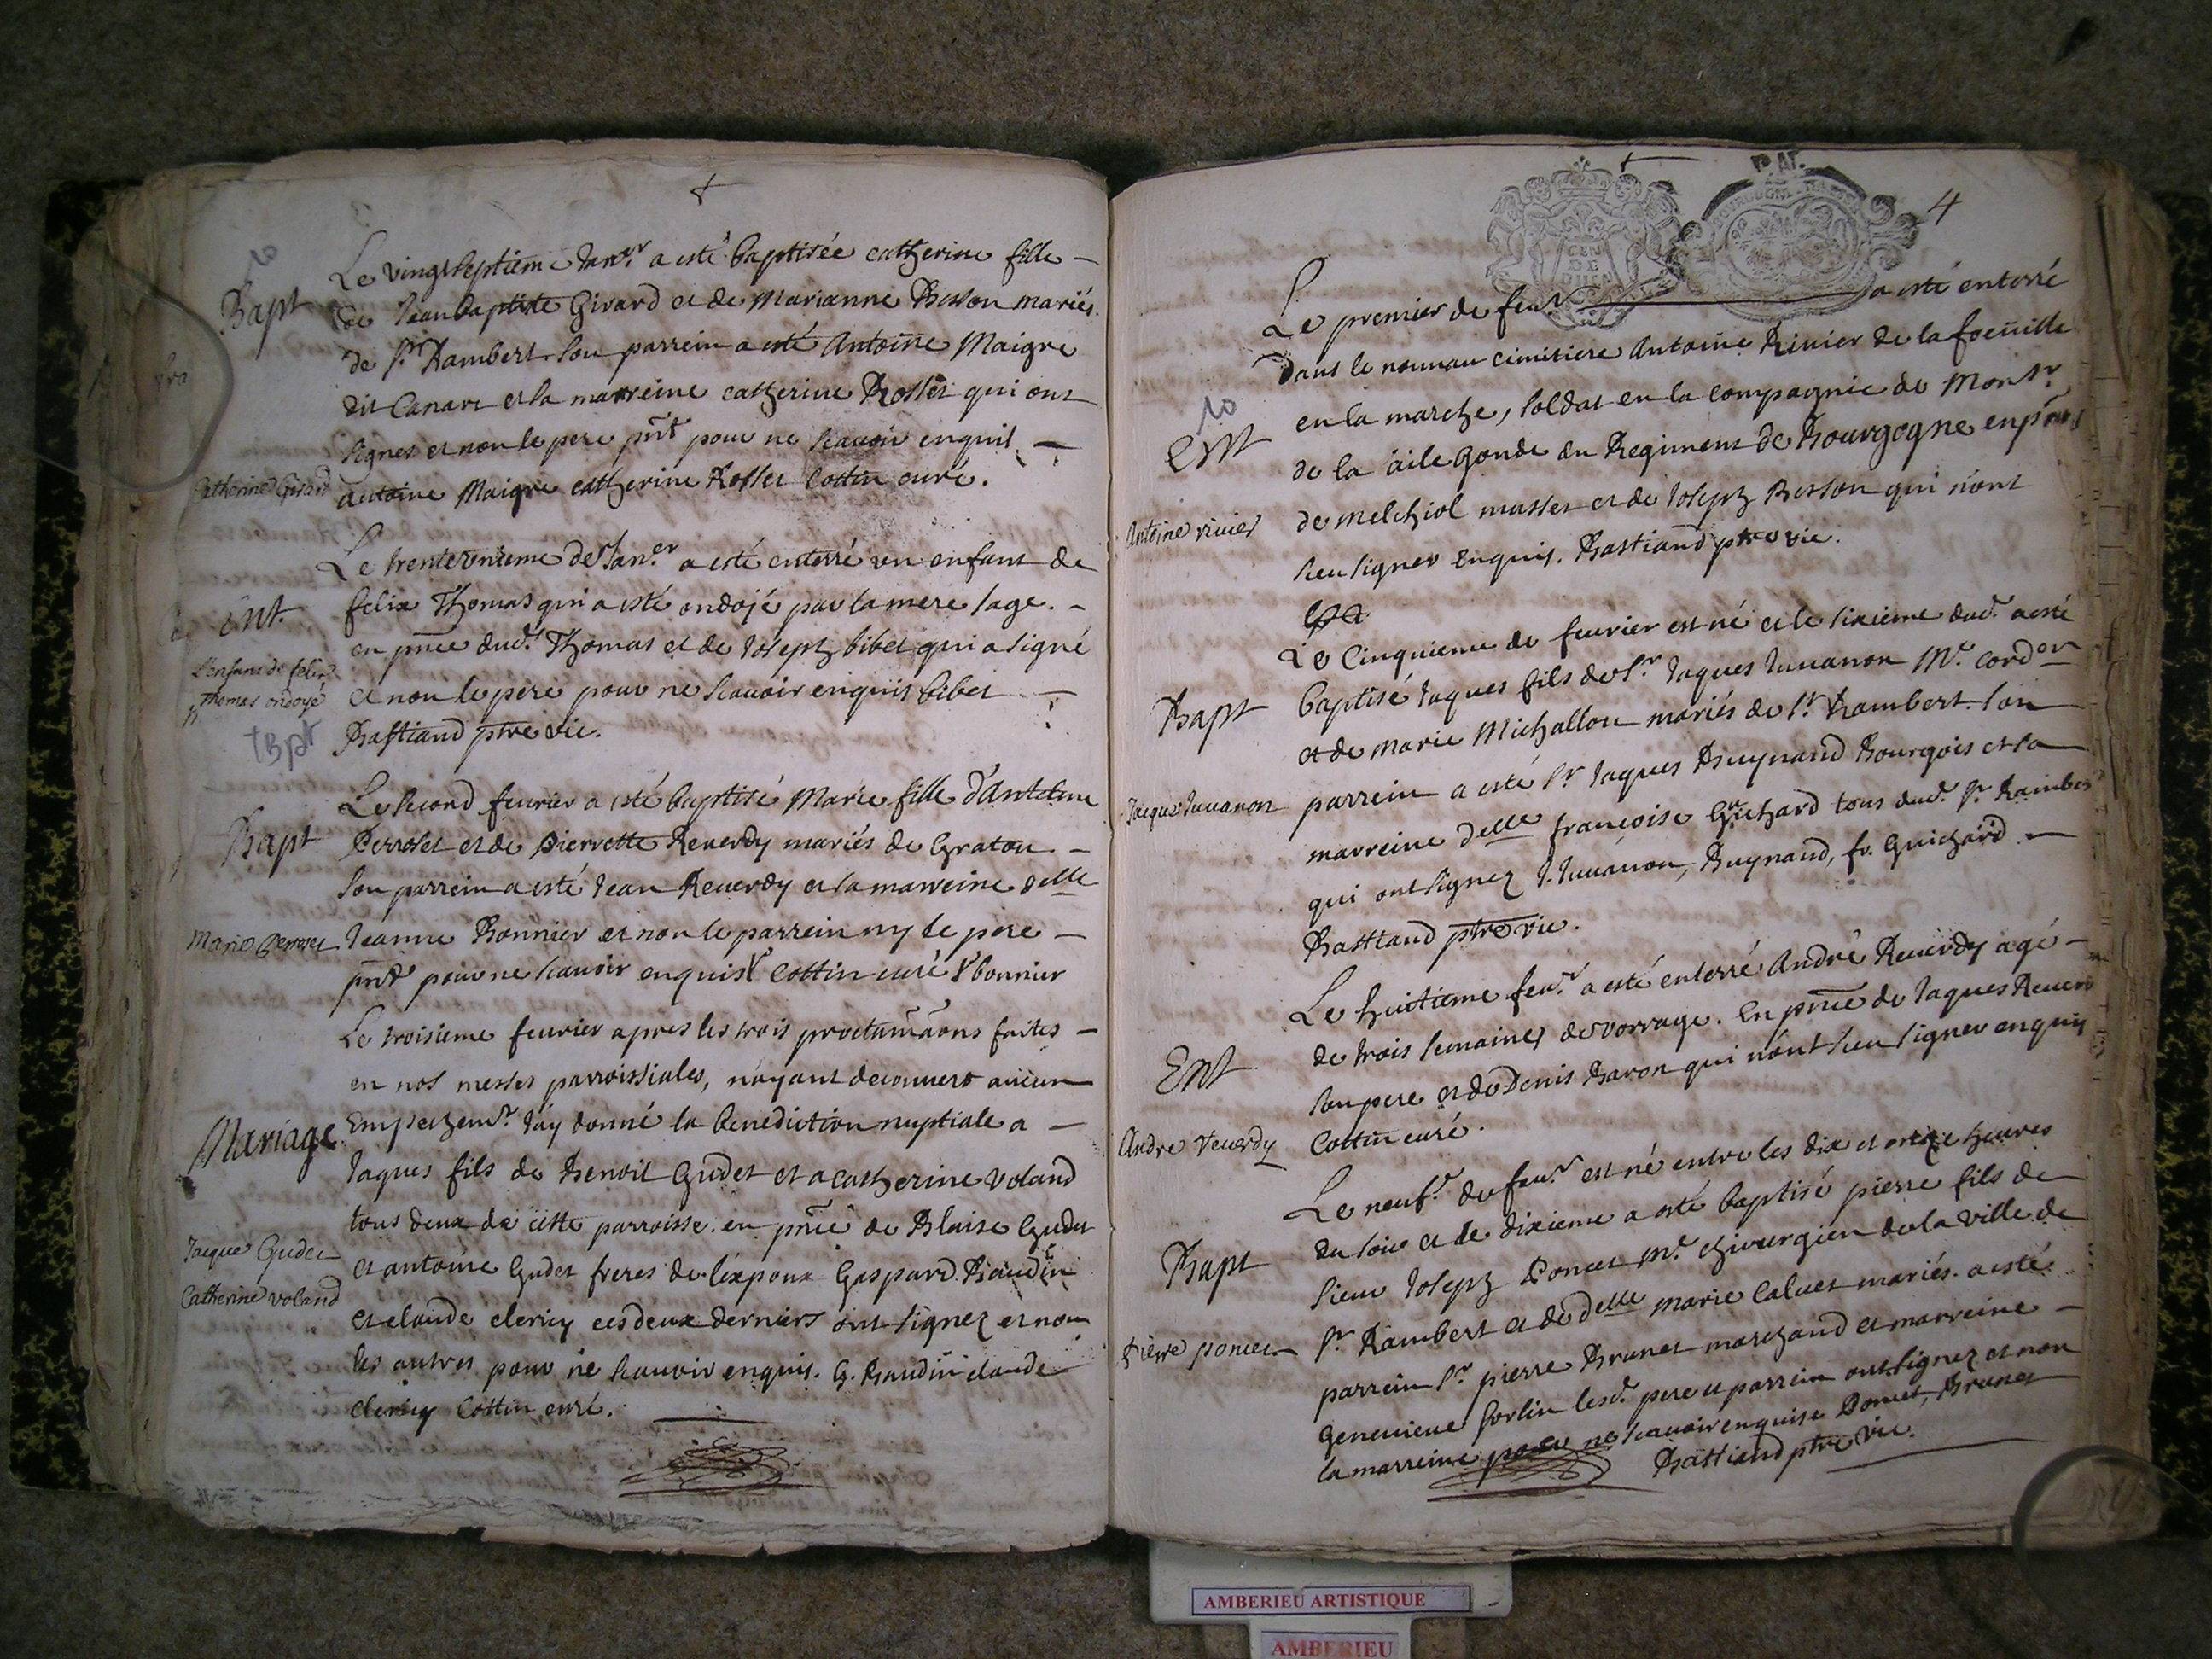 Bapt
Catherine Girard
Le vingtseptieme Janv.r a esté baptisée catherine fille
de Jean baptiste Girard et de Marianne Besson mariés
de s.t Rambert son parrein a esté Antoine Maigre
dit Canart et la marreine catherine Rosset qui ont
signes et non le pere pnt pour ne scavoir enquil
antoine Maigre catherine Rosset Cottin curé.
ent.
L'enfant de felix
Thomas ondoyé
Bpt
Le trenteunieme de Jan.er a esté enterré un enfant de
felix Thomas qui a esté ondojé par la mere sage.
en pnce dud.t Thomas et de Joseph bibet qui a signé
et non le pere pour ne scavoir enquis bibet
Bastiand ptre vic.
Bapt
Marie Perroset
Le second feurier a esté baptisé Marie fille d'Antelme
Perroset et de Pierrette Reverdy mariés de Graton
son parrein a esté Jean Reverdy et la marreine delle
Jeanne Bonnier et non le parrein ny le pere
pnt pour ne scavoir enquis Cottin curé bonnier
Mariage
Jacque Gudet
Catherine voland
Le troisieme feurier apres les trois proclamaons faites
en nos messes parroissiales, n'ayant decouvert aucun
Empechem.t j'ay donné la benediction nuptiale a
Jaques fils de Benoit Gudet et a catherine voland
tous deux de cette parroisse. en pnce de Blaise Gudet
et antoine Gudet freres de l'expoux Gaspard Baudin
et claude clericy ces deux derniers ont signez et non
les autres pour ne scavoir enquis. G. Baudin claude
clericy Cottin curé.
4
Ent
Antoine rivier
Le premier de feu.r a esté enterré
Dans le nouveau cimitiere Antoine Rivier de la foeuille
en la marche, soldat en la compagnie de Mons.r
de la aile Gonde du Regiment de Bourgogne en
de melchiol masset et de Joseph Besson qui n'ont
sceu signer enquis. Bastiand ptre vic.
Bapt
Jacque Juuanon
Le Cinquieme de feurier est né et le sixieme dud.t a esté
baptisé Jaques fils de s.r Jaques Juuanon M.e cordon
et de Marie Michallon mariés de s.t Rambert. son
parrein a esté s.r Jaques Buynand Bourgois et la
marreine delle françoise Guichard tous dud.t s.t Rambert
qui ont signez J. Juuanon, Buynand, fr. Guichard
Bastiand ptre vic.
Ent
Andre Reverdy
Le huitieme feu.r a esté enterré André Reverdy agé
de trois semaines de vorrage. En pnce de Jaques
son pere et de Denis Baron qui n'ont sceu signer enquis
Cottin curé.
Bapt
Pierre poncet
Le neuf.e de feu.r est né entre les dix et onze heures
du soir et le dixieme a esté baptisé pierre fils de
sieur Joseph Poncet m.e chirurgien de la ville de
s.t Rambert et de delle marie Caluet mariés. a esté
parrein s.r pierre Brunet marchand et marreine
Geneuieue sorlin lesd.t pere et parrein ont signez et non
la marreine pour ne scavoir enquise Poncet, Brunet
Bastiand ptre vic.
AMBERIEU ARTISTIQUE
AMBERIEU